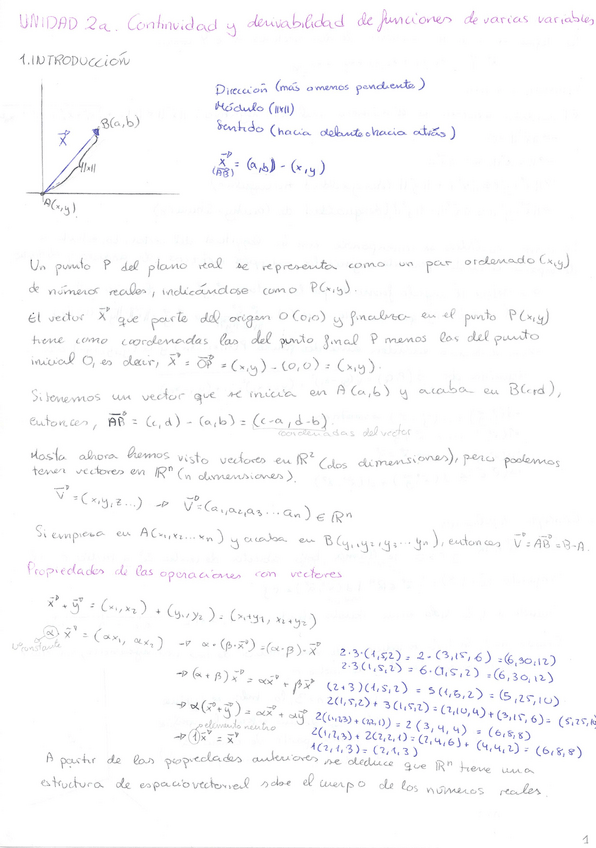 UNIDAD 2a. Continuidad y derivabilidad de funciones de varias variables
1. INTRODUCCIÓN
Dirección (más o menos pendiente)
Módulo (||x||)
Sentido (hacia delante o hacia atrás)
B(a,b)
x⃗
||x||
A(x,y)
x⃗ = (a,b) - (x,y)
(AB)
Un punto P del plano real se representa como un par ordenado (x,y)
de números reales, indicándose como P(x,y).
El vector x⃗ que parte del origen O(0,0) y finaliza en el punto P(x,y)
tiene como coordenadas las del punto final P menos las del punto
inicial O, es decir, x⃗ = OP⃗ = (x,y) - (0,0) = (x,y).
Si tenemos un vector que se inicia en A(a,b) y acaba en B(c,d),
entonces, AB⃗ = (c,d) - (a,b) = (c-a, d-b).
coordenadas del vector
Hasta ahora hemos visto vectores en ℝ² (dos dimensiones), pero podemos
tener vectores en ℝⁿ (n dimensiones).
V⃗ = (x,y,z...) → V⃗ = (a₁,a₂,a₃...aₙ) ∈ ℝⁿ
Si empieza en A(x₁,x₂...xₙ) y acaba en B(y₁,y₂,y₃...yₙ), entonces V⃗ = AB⃗ = B-A.
Propiedades de las operaciones con vectores
x⃗ + y⃗ = (x₁,x₂) + (y₁,y₂) = (x₁+y₁, x₂+y₂)
α x⃗ = (αx₁, αx₂) → α·(β·x⃗) = (α·β)·x⃗
constante
2·3·(1,5,2) = 2·(3,15,6) = (6,30,12)
2·3(1,5,2) = 6·(1,5,2) = (6,30,12)
→ (α+β) x⃗ = αx⃗ + βx⃗
(2+3)(1,5,2) = 5(1,5,2) = (5,25,10)
2(1,5,2) + 3(1,5,2) = (2,10,4) + (3,15,6) = (5,25,10)
→ α(x⃗+y⃗) = αx⃗ + αy⃗
2((1,2,3) + (2,2,1)) = 2(3,4,4) = (6,8,8)
2(1,2,3) + 2(2,2,1) = (2,4,6) + (4,4,2) = (6,8,8)
elemento neutro
→ 1x⃗ = x⃗
1(2,1,3) = (2,1,3)
A partir de las propiedades anteriores se deduce que ℝⁿ tiene una
estructura de espacio vectorial sobre el cuerpo de los números reales.
1